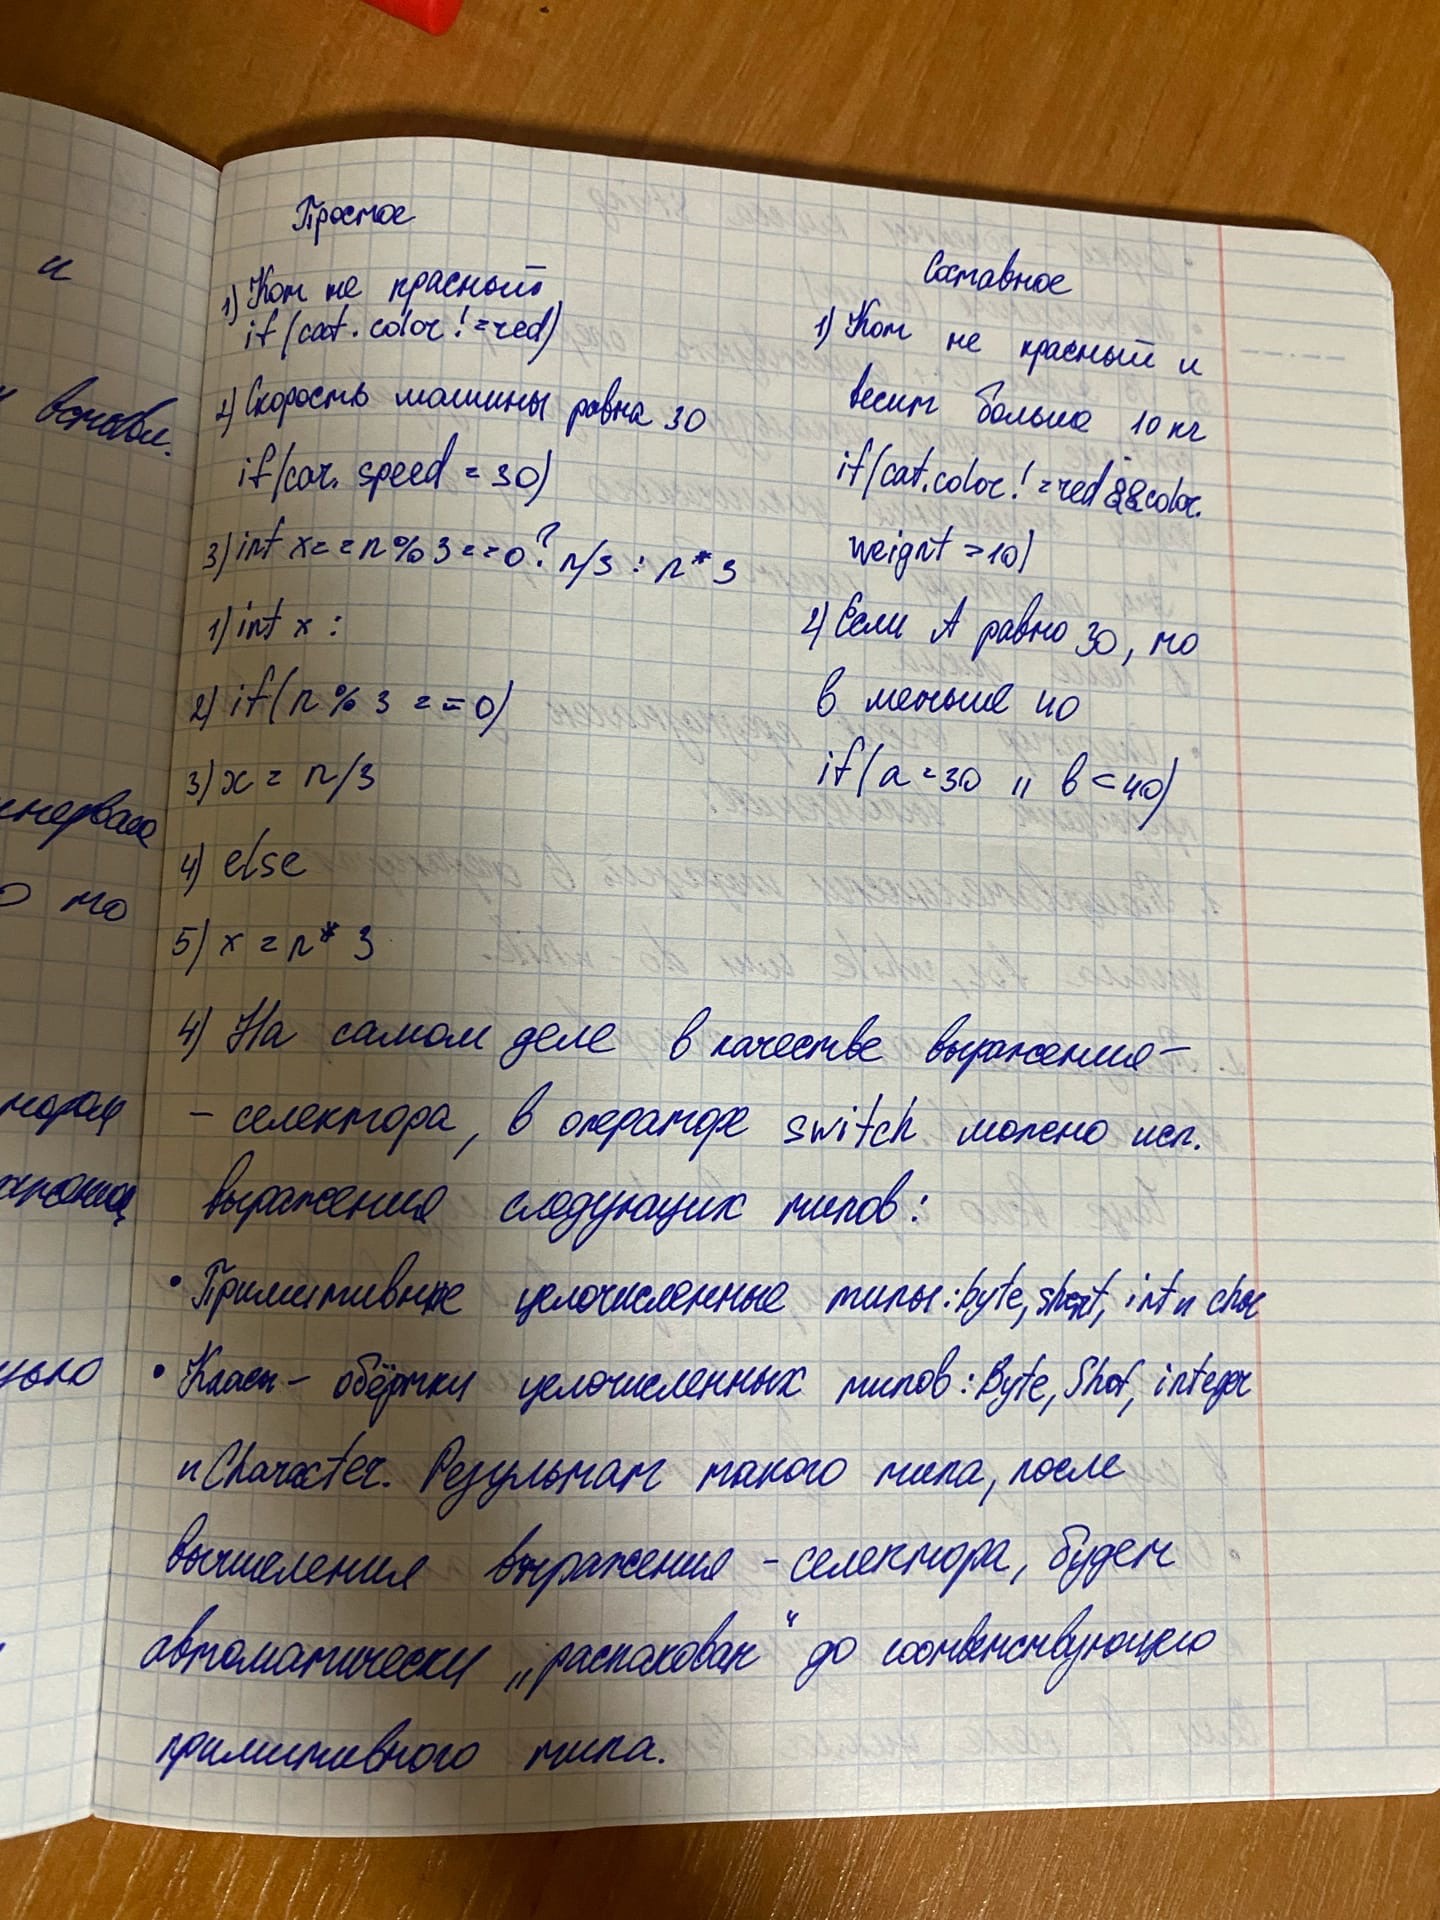 Простое
1) Кот не красный
if (cat. color != red)
2) Скорость машины равна 30
if (car. speed = 30)
3) int x = = n % 3 == 0 ? n/3 : n * 3
1) int x :
2) if (n % 3 == 0)
3) x = n/3
4) else
5) x = n * 3
Составное
1) Кот не красный и
весит больше 10 кг
if (cat.color != red && color.
weignt = 10)
2) Если А равно 30, то
в меньше 40
if (a = 30 || b < 40)
4) На самом деле в качестве выражения-
- селектора, в операторе switch можно исп.
выражения следующих типов:
• Примитивные целочисленные типы: byte, short, int и char
• Класы - обёртки целочисленных типов: Byte, Shot, integer
и Character. Результат такого типа, после
вычисления выражения - селектора, будет
автоматически „распакован“ до соответствующего
примитивного типа.
и
вставл.
то